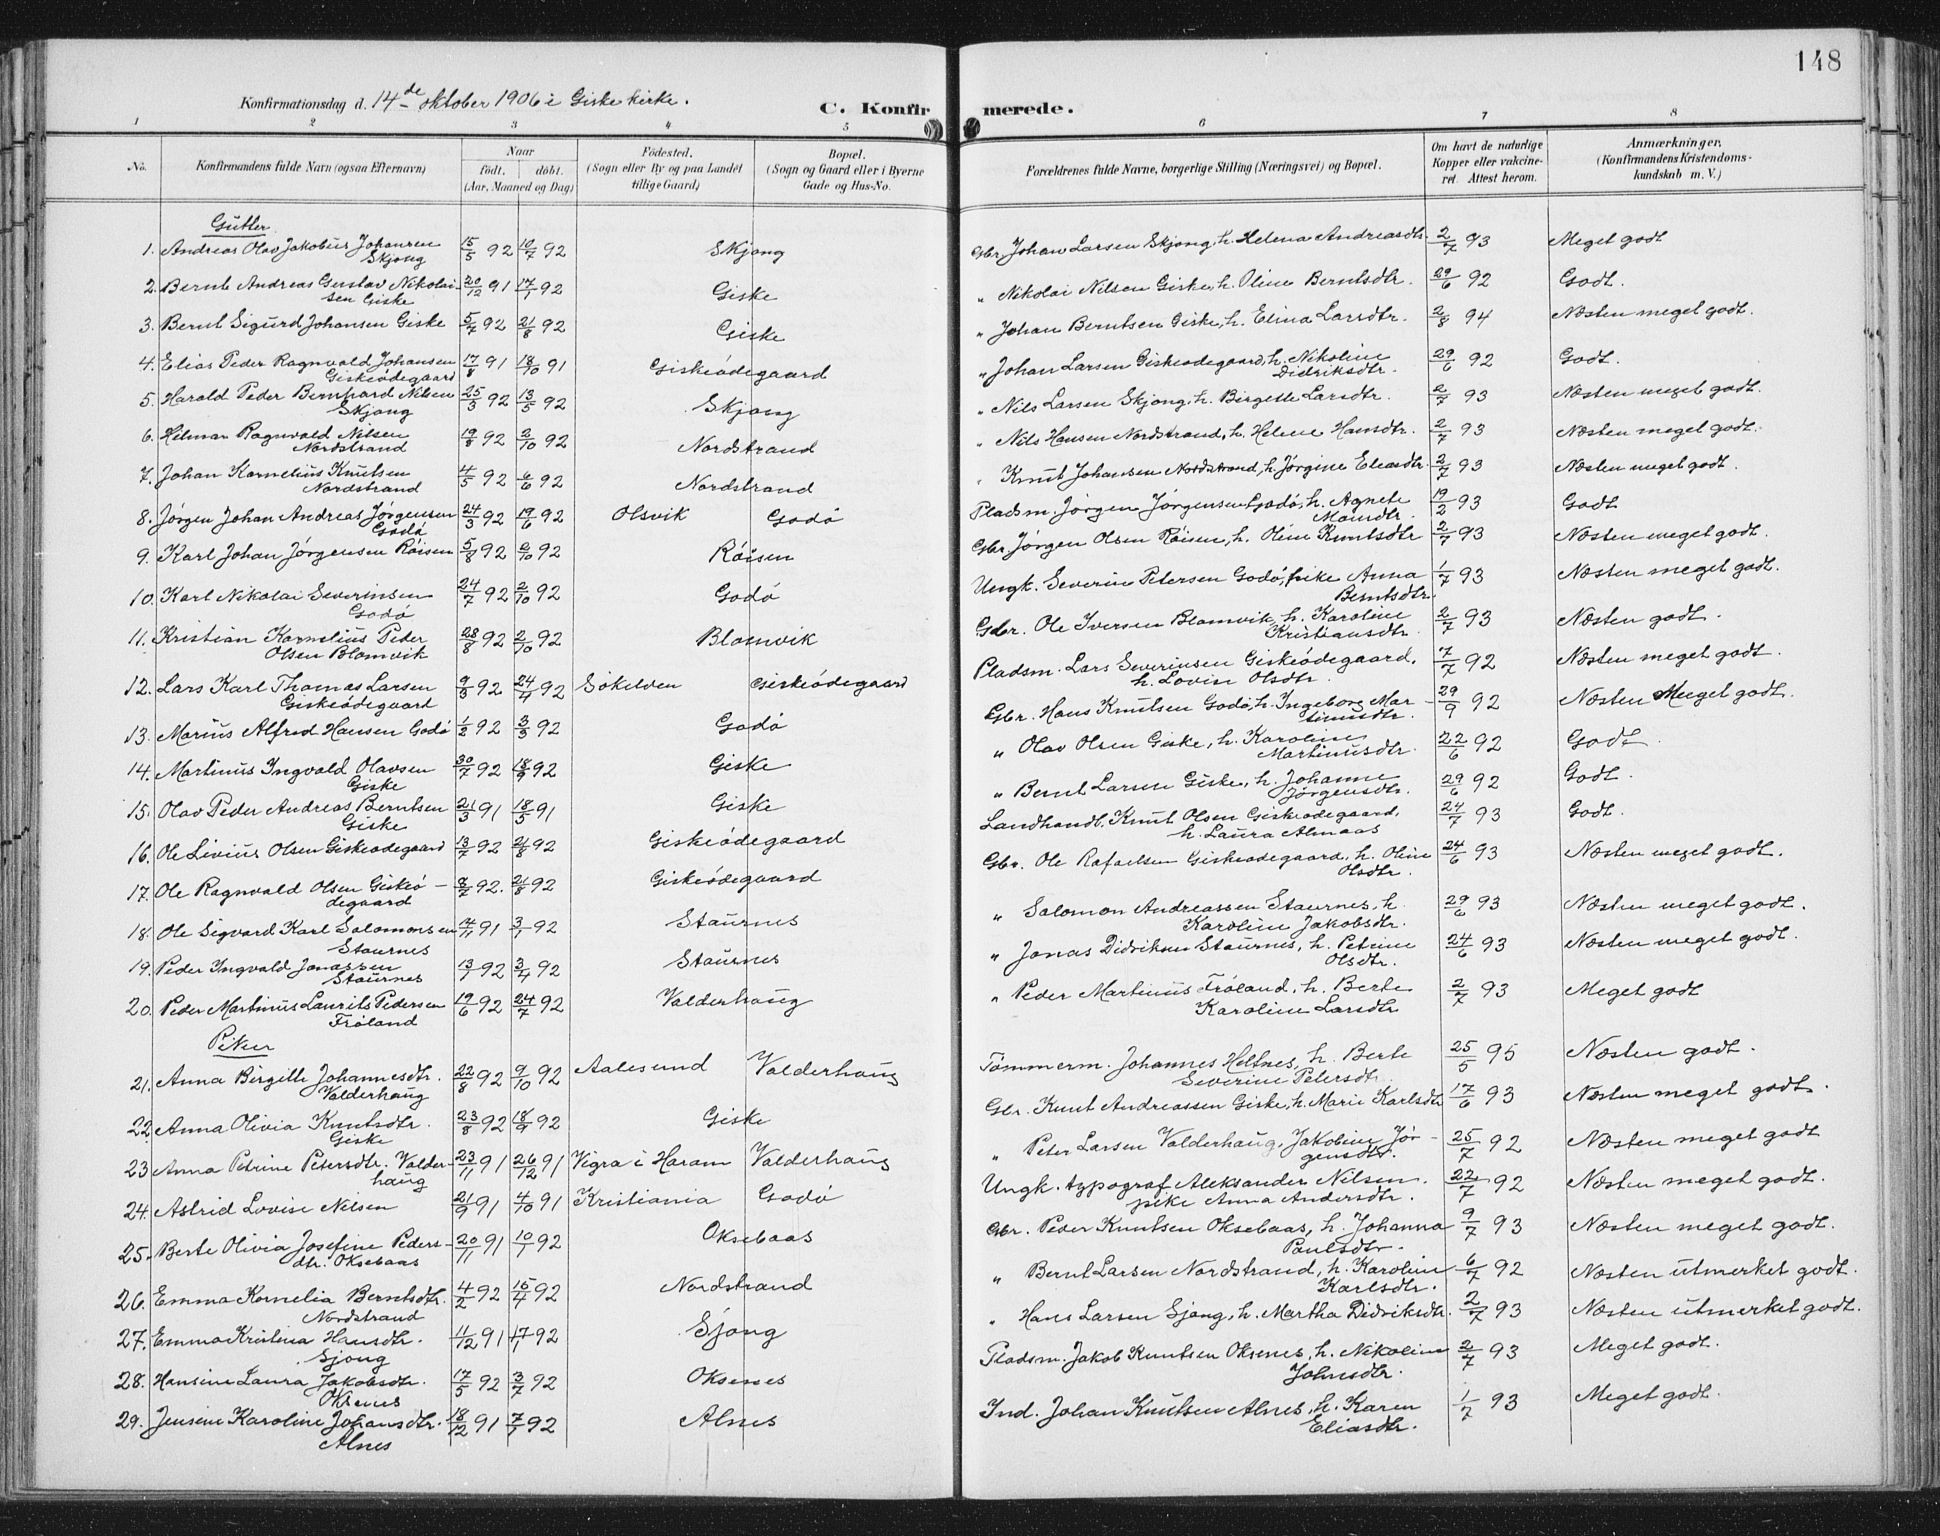 148
Konfirmationsdag d. 14de oktober 1906 i Giske kirke.
C. Konfirmerede.
1 2 3 4 5 6 7 8
No. Konfirmandens fulde Navn (ogsaa Efternavn) Naar født. døbt. (Aar, Maaned og Dag) Fødested. (Sogn eller By og paa Landet tillige Gaard) Bopæl. (Sogn og Gaard eller i Byerne Gade og Hus-No. Forældrenes fulde Navne, borgerlige Stilling (Næringsvei) og Bopæl. Om havt de naturlige Kopper eller vakcineret. Attest herom. Anmærkninger. (Konfirmandens Kristendomskundskab m. V.)
Gutter
1. Andreas Olav Jakobus Johansen Skjong 15/5 92 10/7 92 Skjong Gbr. Johan Larsen Skjong, h. Helena Andreasdtr. 2/7 93 Meget godt
2. Bernt Andreas Gustav Nikolaisen Giske 20/12 91 17/1 92 Giske " Nikolai Nilsen Giske, h. Oline Berntsdtr. 29/6 92 Godt.
3. Bernt Sigurd Johansen Giske 5/7 92 21/8 92 Giske " Johan Berntsen Giske, h. Elina Larsdtr. 2/8 94 Næsten meget godt.
4. Elias Peder Ragnvald Johansen Giskeødegaard 17/8 91 18/10 91 Giskeødegaard " Johan Larsen Giskeødegaard, h. Nikoline Didriksdtr. 29/6 92 Godt.
5. Harald Peder Bernhard Nilsen Skjong 25/3 92 13/5 92 Skjong " Nils Larsen Skjong, h. Birgitte Larsdtr. 2/7 93 Næsten meget godt.
6. Hilmar Ragnvald Nilsen Nordstrand 19/8 92 2/10 92 Nordstrand " Nils Hansen Nordstrand, h. Helene Hansdtr. 2/7 93 Næsten meget godt.
7. Johan Kornelius Knutsen Nordstrand 4/5 92 6/6 92 Nordstrand " Knut Johansen Nordstrand, h. Jørgine Eliasdtr. 2/7 93 Næsten meget godt.
8. Jørgen Johan Andreas Jørgensen Godø 24/3 92 19/6 92 Olsvik Godø Pladsm. Jørgen Jørgensen Godø, h. Agnete Monsdtr. 19/2 93 Godt
9. Karl Johan Jørgensen Røisen 5/8 92 2/10 92 Røisen Gbr. Jørgen Olsen Røisen, h. Oline Knutsdtr 2/7 93 Næsten meget godt.
10. Karl Nikolai Severinsen Godø 24/7 92 2/10 92 Godø Ungk. Severin Petersen Godø, pike Anna Berntsdtr. 1/7 93 Næsten meget godt.
11. Kristian Kornelius Peder Olsen Blomvik 28/8 92 2/10 92 Blomvik Gbr. Ole Iversen Blomvik, h. Karoline Kristiansdtr. 2/7 93 Næsten godt.
12. Lars Karl Thomas Larsen Giskeødegaard 9/3 92 24/4 92 Søkelven Giskeødegaard Pladsm. Lars Severinsen Giskeødegaard, h. Lovise Olsdtr. 7/7 92 Næsten meget godt.
13. Marius Alfred Hansen Godø 1/2 92 3/3 92 Godø Gbr. Hans Knutsen Godø, h. Ingeborg Martinusdtr. 29/9 92 Næsten Meget godt.
14. Martinus Ingvald Olavsen Giske 30/7 92 18/9 92 Giske " Olav Olsen Giske, h. Karoline Martinusdtr. 22/6 92 Godt
15. Olav Peder Andreas Berntsen Giske 21/3 91 18/5 91 Giske " Bernt Larsen Giske, h. Johanne Jørgensdtr. 29/6 92 Godt.
16. Ole Livius Olsen Giskeødegaard 13/7 92 21/8 92 Giskeødegaard Landhandl. Knut Olsen Giskeødegaard, h. Laura Almaas 24/7 93 Godt.
17. Ole Ragnvald Olsen Giskeødegaard 8/7 92. 21/8 92 Giskeødegaard Gbr. Ole Rafaelsen Giskeødegaard, h. Oline Olsdtr. 24/6 93 Næsten meget godt.
18. Ole Sigvard Karl Salomonsen Staurnes 4/11 91 3/1 92 Staurnes " Salomon Andreassen Staurnes, h. Karoline Jakobsdtr. 29/6 93 Næsten meget godt.
19. Peder Ingvald Jonassen Staurnes 13/1 92 3/4 92 Staurnes " Jonas Didriksen Staurnes, h. Petrine Olsdtr. 24/6 93 Næsten meget godt.
20. Peder Martinus Laurits Pedersen Frøland 19/6 92 24/7 92 Valderhaug " Peder Martinus Frøland, h. Berte Karoline Larsdtr 2/7 93 Meget godt
Piker
21. Anna Birgitte Johannesdtr. Valderhaug 22/8 92 9/10 92 Aalesund Valderhaug Tømmerm. Johannes Heltnes, h. Berte Severine Petersdtr. 25/5 95 Næsten godt.
22. Anna Olivia Knutsdtr. Giske 23/8 92 18/9 92 Giske Gbr. Knut Andreassen Giske, h. Marie Karlsdtr 17/6 93 Næsten meget godt.
23 Anna Petrine Petersdtr. Valderhaug 23/11 91 26/12 91 Vigra i Haram Valderhaug " Peter Larsen Valderhaug, Jakobine Jørgensdtr. 25/7 92 Næsten meget godt
24. Astrid Lovise Nilsen 21/9 91 4/10 91 Kristiania Godø Ungk. typograf Aleksander Nilsen. pike Anna Andersdtr. 22/7 92 Næsten meget godt.
25. Berte Olivia Josefine Pedersdtr. Oksebaas 20/11 91 10/1 92 Oksebaas Gbr. Peder Knutsen Oksebaas, h. Johanna Paulsdtr. 9/7 93 Næsten meget godt.
26. Emma Kornelia Berntsdtr. Nordstrand 4/2 92 15/4 92 Nordstrand " Bernt Larsen Nordstrand, h. Karoline Karlsdtr. 6/7 92 Næsten utmerket godt.
27. Emma Kristina Hansdtr. Sjong 11/12 91 17/1 92 Sjong " Hans Larsen Sjong, h. Martha Didriksdtr. 2/7 93 Næsten utmerket godt.
28. Hansine Laura Jakobsdtr. Oksenes 17/5 92 3/7 92 Oksenes Pladsm. Jakob Knutsen Oksnes, h. Nikoline Johnsdtr. 2/7 93 Meget godt.
29. Jensine Karoline Johansdtr. Alnes 18/12 91 7/1 92 Alnes Ind. Johan Knutsen Alnes, h. Karen Eliasdtr. 1/7 93 Meget godt.